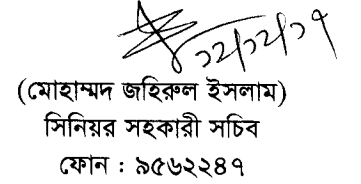 ১২/১২/১৭
(মোহাম্মদ জহিরুল ইসলাম)
সিনিয়র সহকারী সচিব
ফোন : ৯৫৬২২৪৭